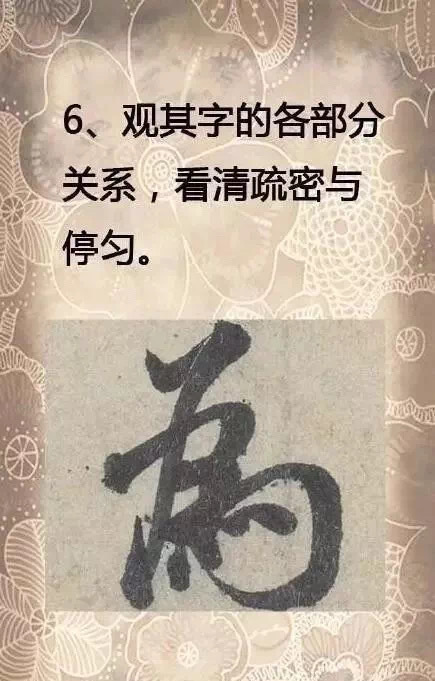 6、观其字的各部分
关系，看清疏密与
停匀。
為